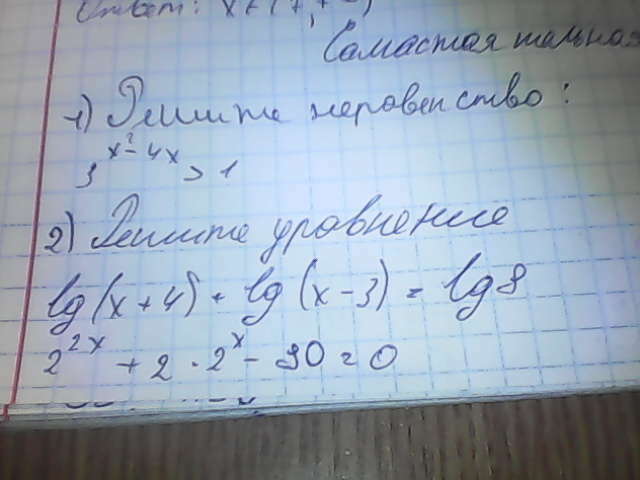 Ответ: x
Самастоятельная
1) Решите неравенство:
3^(x²-4x) > 1
2) Решите уравнение
lg(x+4) + lg(x-3) = lg8
2^(2x) + 2 · 2^x - 80 = 0